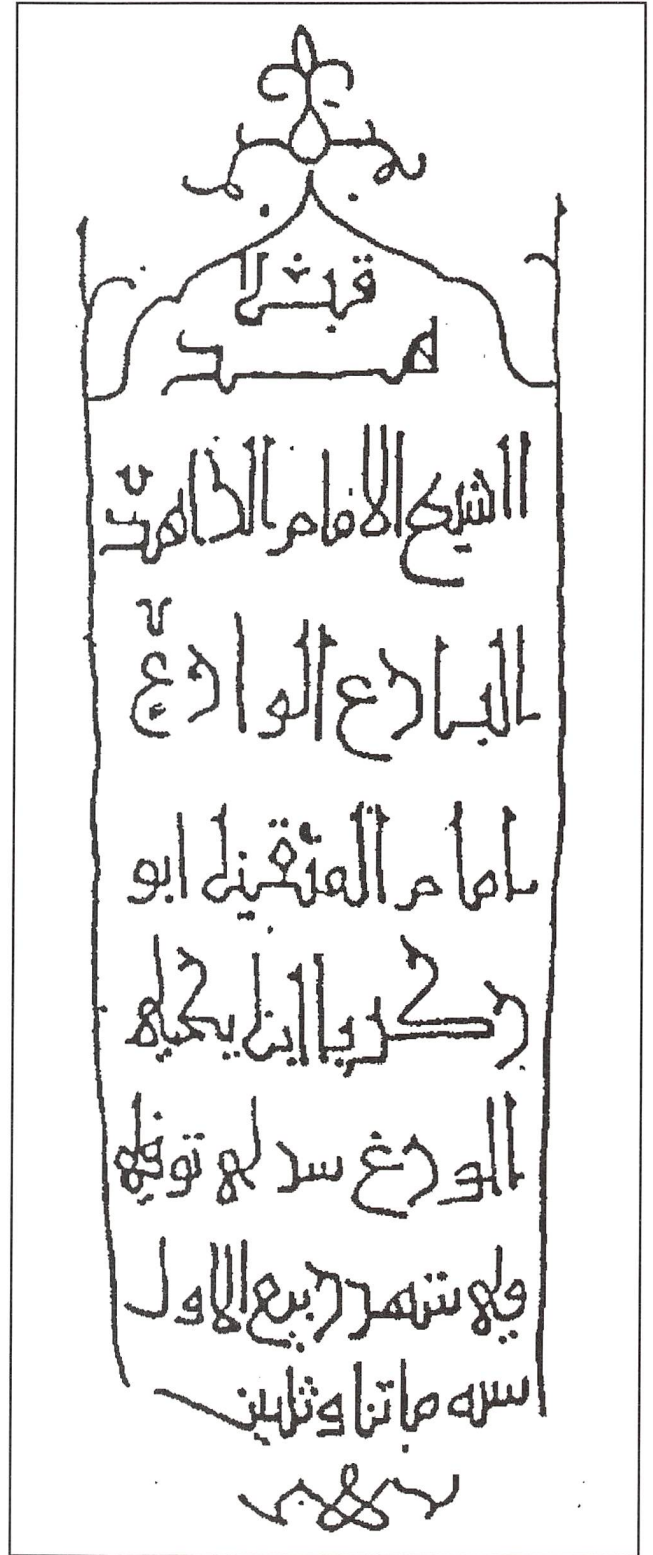 قبر
الشيخ الامام الزاهد
البارع الوارع
امام المتقين ابو
زكريا ابن يحيى
الورع توفى
فى شهر ربيع الاول
سنه ماتنا وثلثين